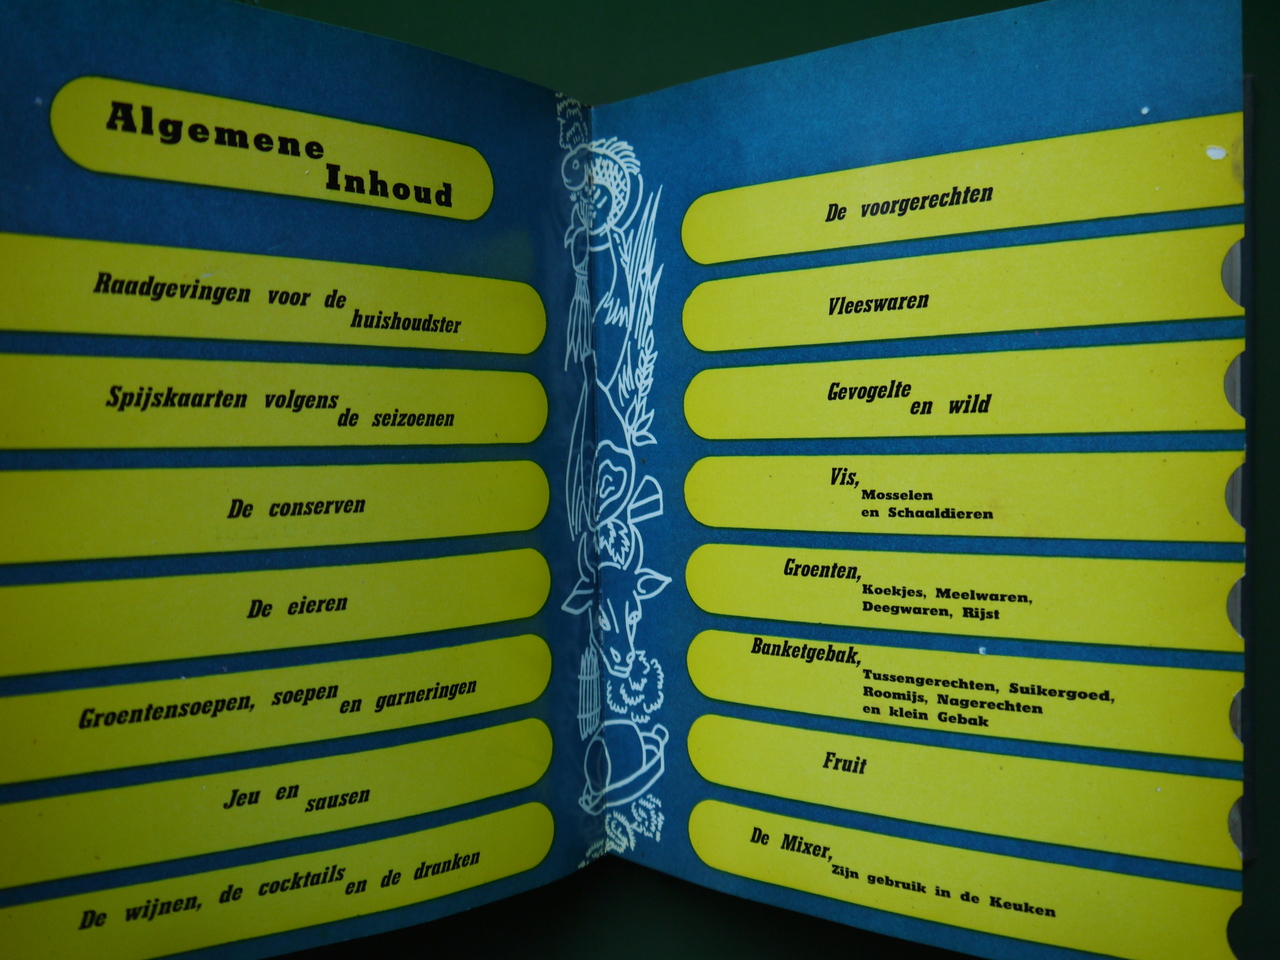 Algemene
Inhoud
Raadgevingen voor de
huishoudster
Spijskaarten volgens
de seizoenen
De conserven
De eieren
Groentensoepen, soepen
en garneringen
Jeu en
sausen
De wijnen, de cocktails
en de dranken
De voorgerechten
Vleeswaren
Gevogelte
en wild
Vis,
Mosselen
en Schaaldieren
Groenten,
Koekjes, Meelwaren,
Deegwaren, Rijst
Banketgebak,
Tussengerechten, Suikergoed,
Roomijs, Nagerechten
en klein Gebak
Fruit
De Mixer,
Zijn gebruik in de Keuken